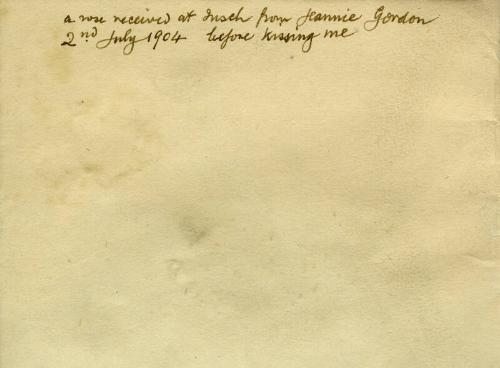 a rose received at Insch from Jeannie Gordon
2nd July 1904 before kissing me